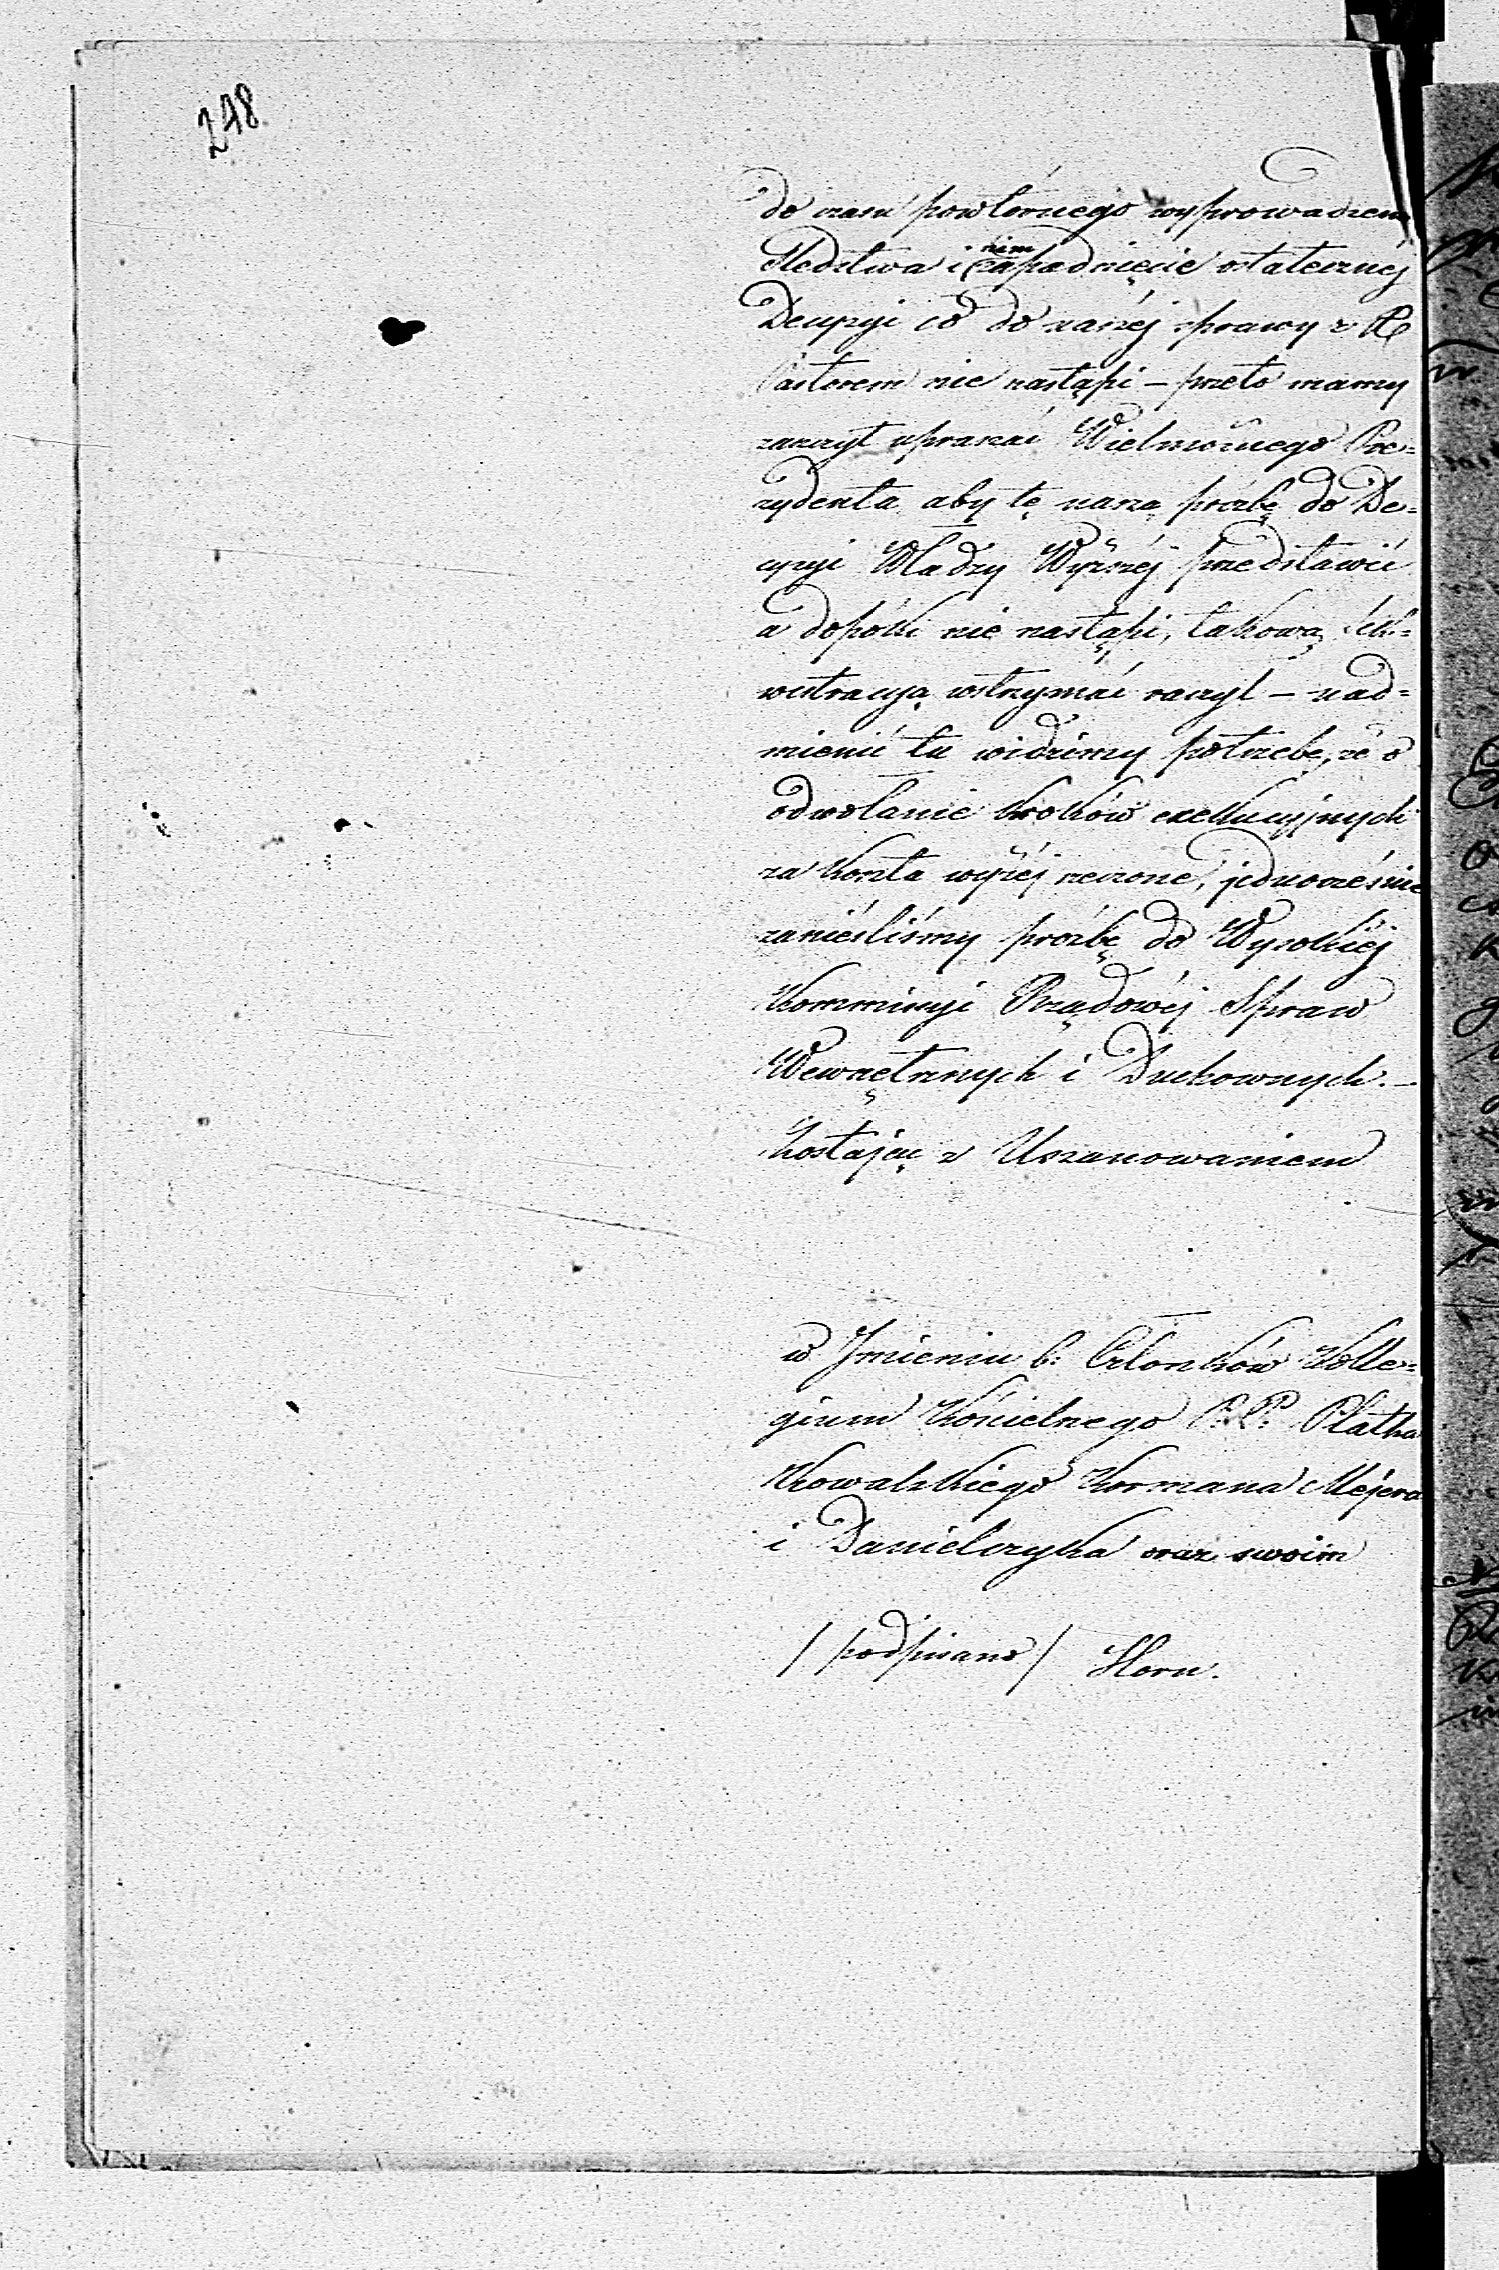 248
do czasu powtórnego wyprowadzenia
Śledztwa i nim zapadnięcie ostatecznéj
Decyzyi co do naszéj sprawy z X
Pastorem nie nastąpi — przeto mamy
zaszczyt upraszać Wielmożnego Pre=
zydenta aby tę naszą prozbę do De=
cyzyi Władzy Wyższéj przedstawić
a dopóki nie nastąpi, takową Sek=
westracyją wstrzymać raczył — nad=
mienić tu widzimy potrzebę, że o
odwołanie kroków exekucyjnych
za koszta wyżéj rzeczone, jednocześnie
zanieśliśmy prozbę do Wysokiéj
Kommissyi Rządowéj Spraw
Wewnętrznych i Duchownych. —
Zostając z Uszanowaniem
w Imieniu b: Członków Kolle=
gium Kościelnego P. P. Płatka
Kowalskiego Kormana Mejera
i Danielczyka oraz swoim
/podpisano/ Horn.